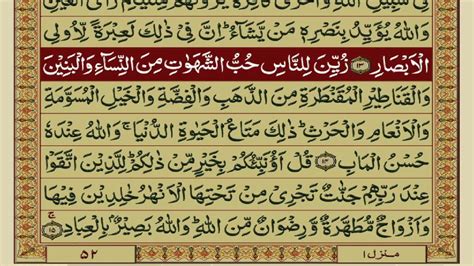 فِىْ سَبِيْلِ اللّٰهِ وَاُخْرٰى كَافِرَةٌ يَّرَوْنَهُمْ مِّثْلَيْهِمْ رَاْىَ الْعَيْنِؕ
وَاللّٰهُ يُؤَيِّدُ بِنَصْرِهٖ مَنْ يَّشَآءُؕ اِنَّ فِىْ ذٰلِكَ لَعِبْرَةً لِّاُولِى
الْاَبْصَارِ ﴿۱۳﴾ زُيِّنَ لِلنَّاسِ حُبُّ الشَّهَوٰتِ مِنَ النِّسَآءِ وَالْبَنِيْنَ
وَالْقَنَاطِيْرِ الْمُقَنْطَرَةِ مِنَ الذَّهَبِ وَالْفِضَّةِ وَالْخَيْلِ الْمُسَوَّمَةِ
وَالْاَنْعَامِ وَالْحَرْثِؕ ذٰلِكَ مَتَاعُ الْحَيٰوةِ الدُّنْيَاۚ وَاللّٰهُ عِنْدَهٗ
حُسْنُ الْمَاٰبِ ﴿۱۴﴾ قُلْ اَؤُنَبِّئُكُمْ بِخَيْرٍ مِّنْ ذٰلِكُمْؕ لِلَّذِيْنَ اتَّقَوْا
عِنْدَ رَبِّهِمْ جَنّٰتٌ تَجْرِىْ مِنْ تَحْتِهَا الْاَنْهٰرُ خٰلِدِيْنَ فِيْهَا
وَاَزْوَاجٌ مُّطَهَّرَةٌ وَّرِضْوَانٌ مِّنَ اللّٰهِؕ وَاللّٰهُ بَصِيْرٌۢ بِالْعِبَادِ ﴿۱۵﴾
منزل ۱
۵۲